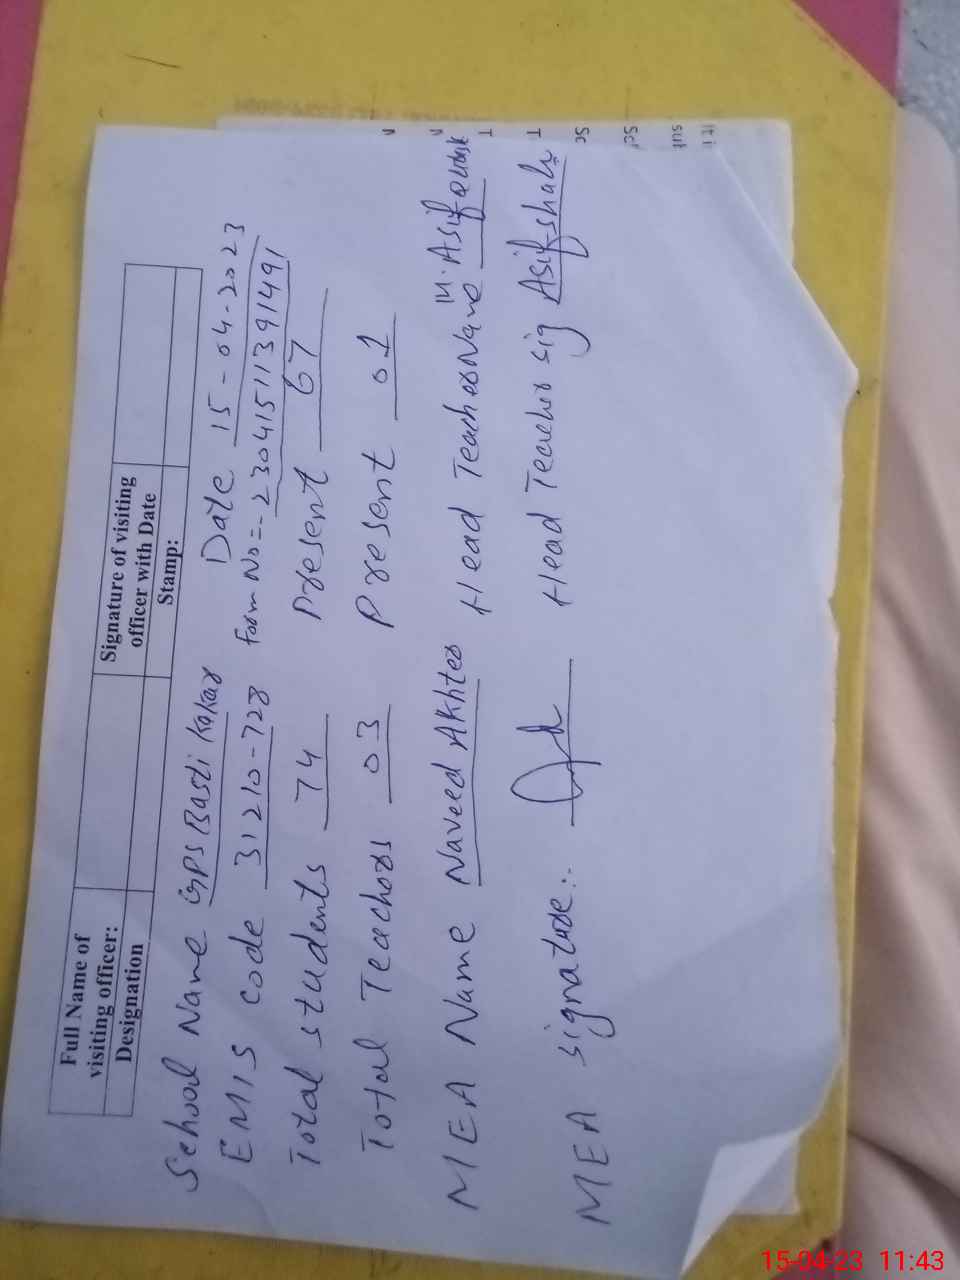 Full Name of visiting officer:
Signature of visiting officer with Date
Designation
Stamp:
School Name GPS Basti Kakar Date 15-04-2023
EMIS code 31210-728 Form No:- 23041511391491
Total students 74 Present 67
Total Teachers 03 Present 01
MEA Name Naveed Akhter Head Teacher Name M. Asif
MEA signature:. Head Teacher sig Asif shah
15-04-23 11:43